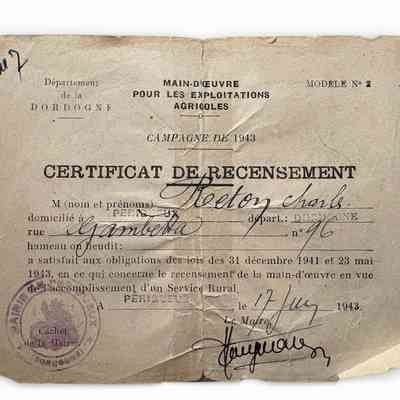 Département
de la
DORDOGNE
MAIN-D'ŒUVRE
POUR LES EXPLOITATIONS
AGRICOLES
MODÈLE N° 2
CAMPAGNE DE 1943
CERTIFICAT DE RECENSEMENT
M (nom et prénoms) Charles
domicilié à PERIGUEUX départ.: DORDOGNE
rue Gambetta n° 96
hameau ou lieudit:
a satisfait aux obligations des lois des 31 décembre 1941 et 23 mai
1943, en ce qui concerne le recensement de la main-d'œuvre en vue
de l'accomplissement d'un Service Rural.
A PERIGUEUX le 17 Juin 1943.
Le Maire,
Cachet
de la Mairie